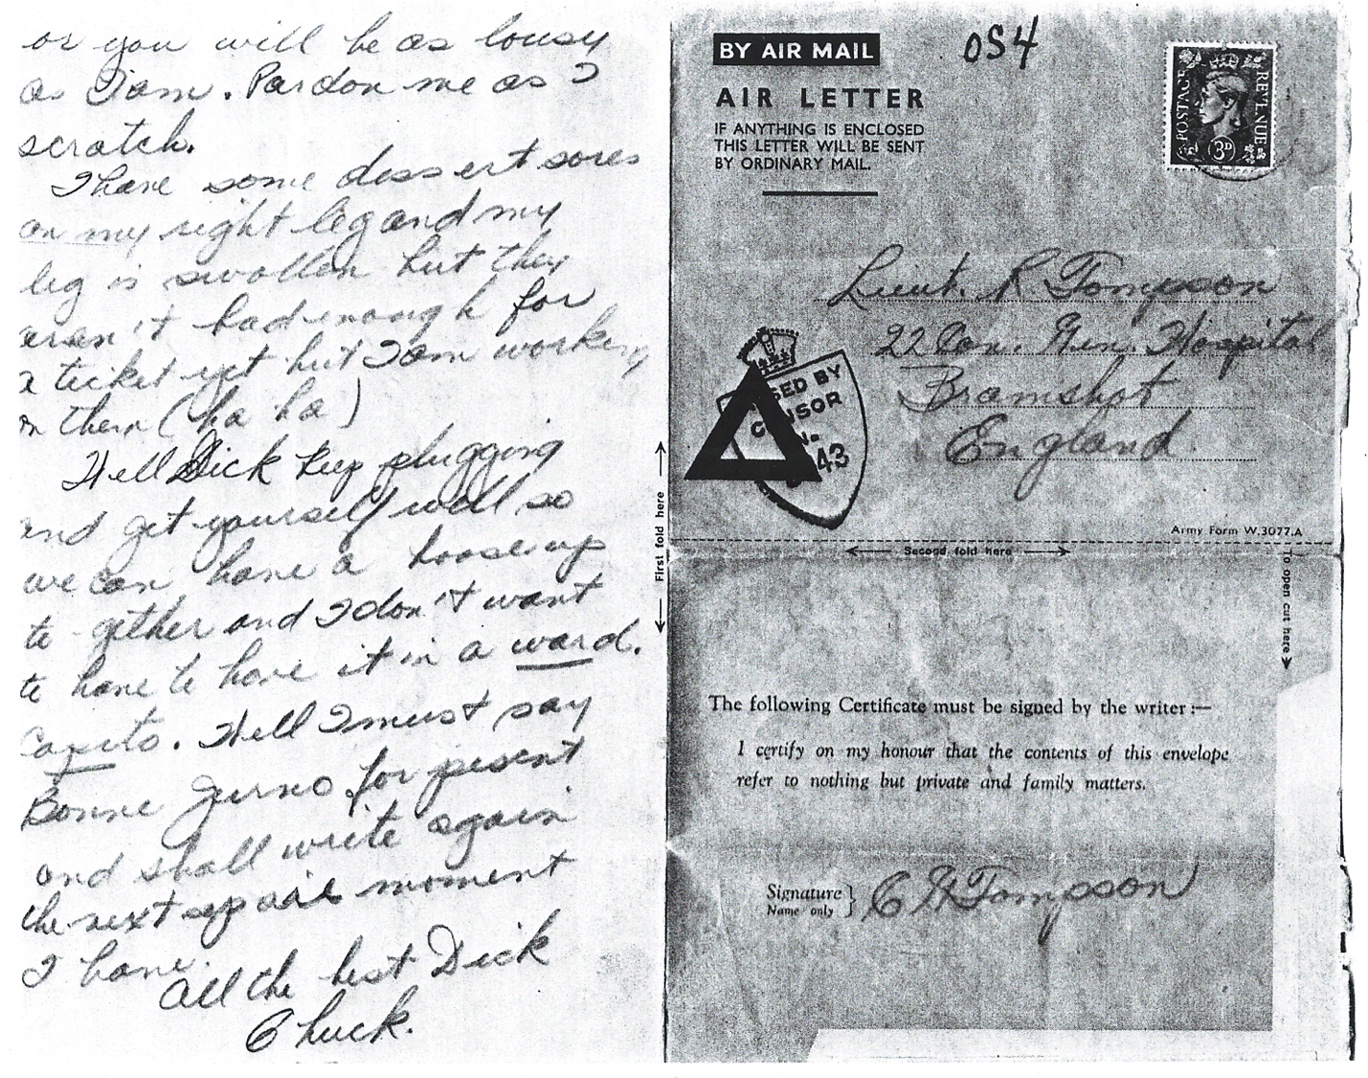 or you will be as lousy
as I am. Pardon me as I
scratch.
I have some dessert sores
on my right leg and my
leg is swollen but they
aren't bad enough for
a ticket yet but I am working
on them (ha ha)
Well Dick keep plugging
and get yourself well so
we can have a boose up
to-gether and I don't want
to have to have it in a ward.
Capito. Well I must say
Bonne Jurno for pesent
and shall write again
the next spare moment
I have.
All the best Dick
Chuck.
BY AIR MAIL
OS4
AIR LETTER
IF ANYTHING IS ENCLOSED
THIS LETTER WILL BE SENT
BY ORDINARY MAIL.
POSTAGE
REVENUE
3D
Lieut. R Tompson
22 Can. Gen. Hospital
Bramshot
England
SED BY
NSOR
43
Army Form W.3077.A
First fold here
Second fold here
To open cut here
The following Certificate must be signed by the writer :—
I certify on my honour that the contents of this envelope
refer to nothing but private and family matters.
Signature
Name only
C H Tompson